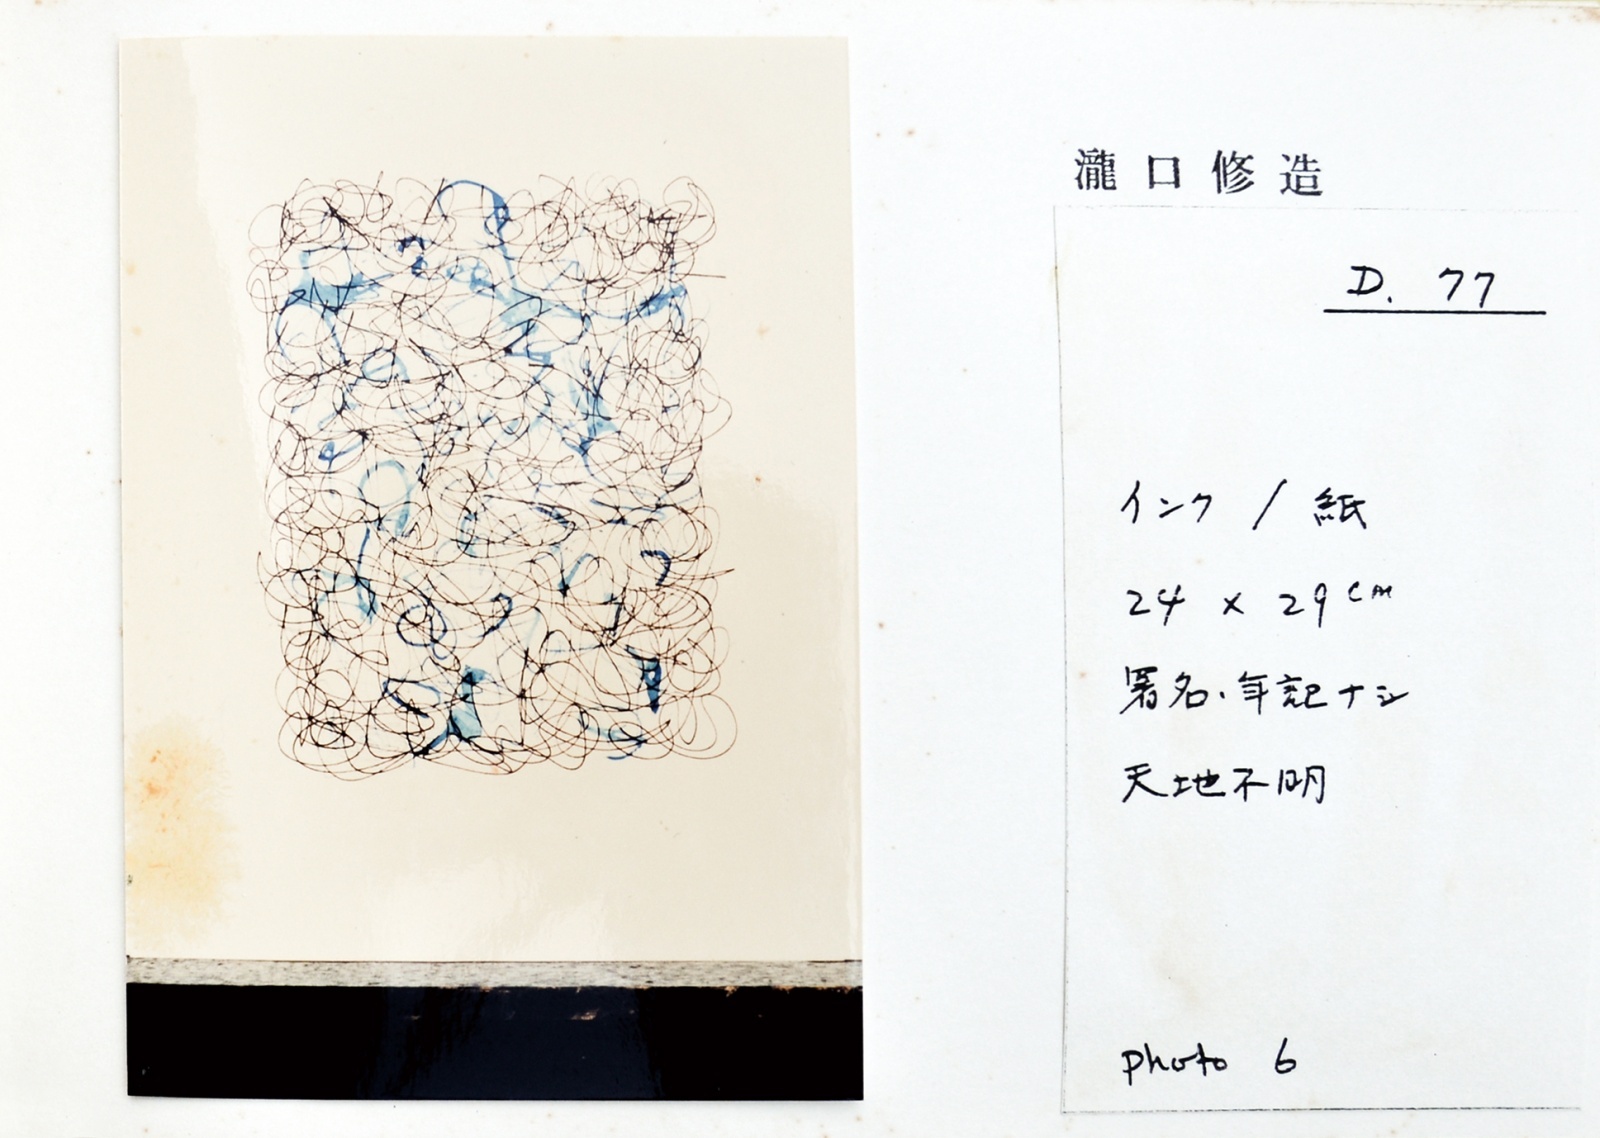 瀧口修造
D. 77
インク / 紙
24 x 29 cm
署名・年記ナシ
天地不明
photo 6